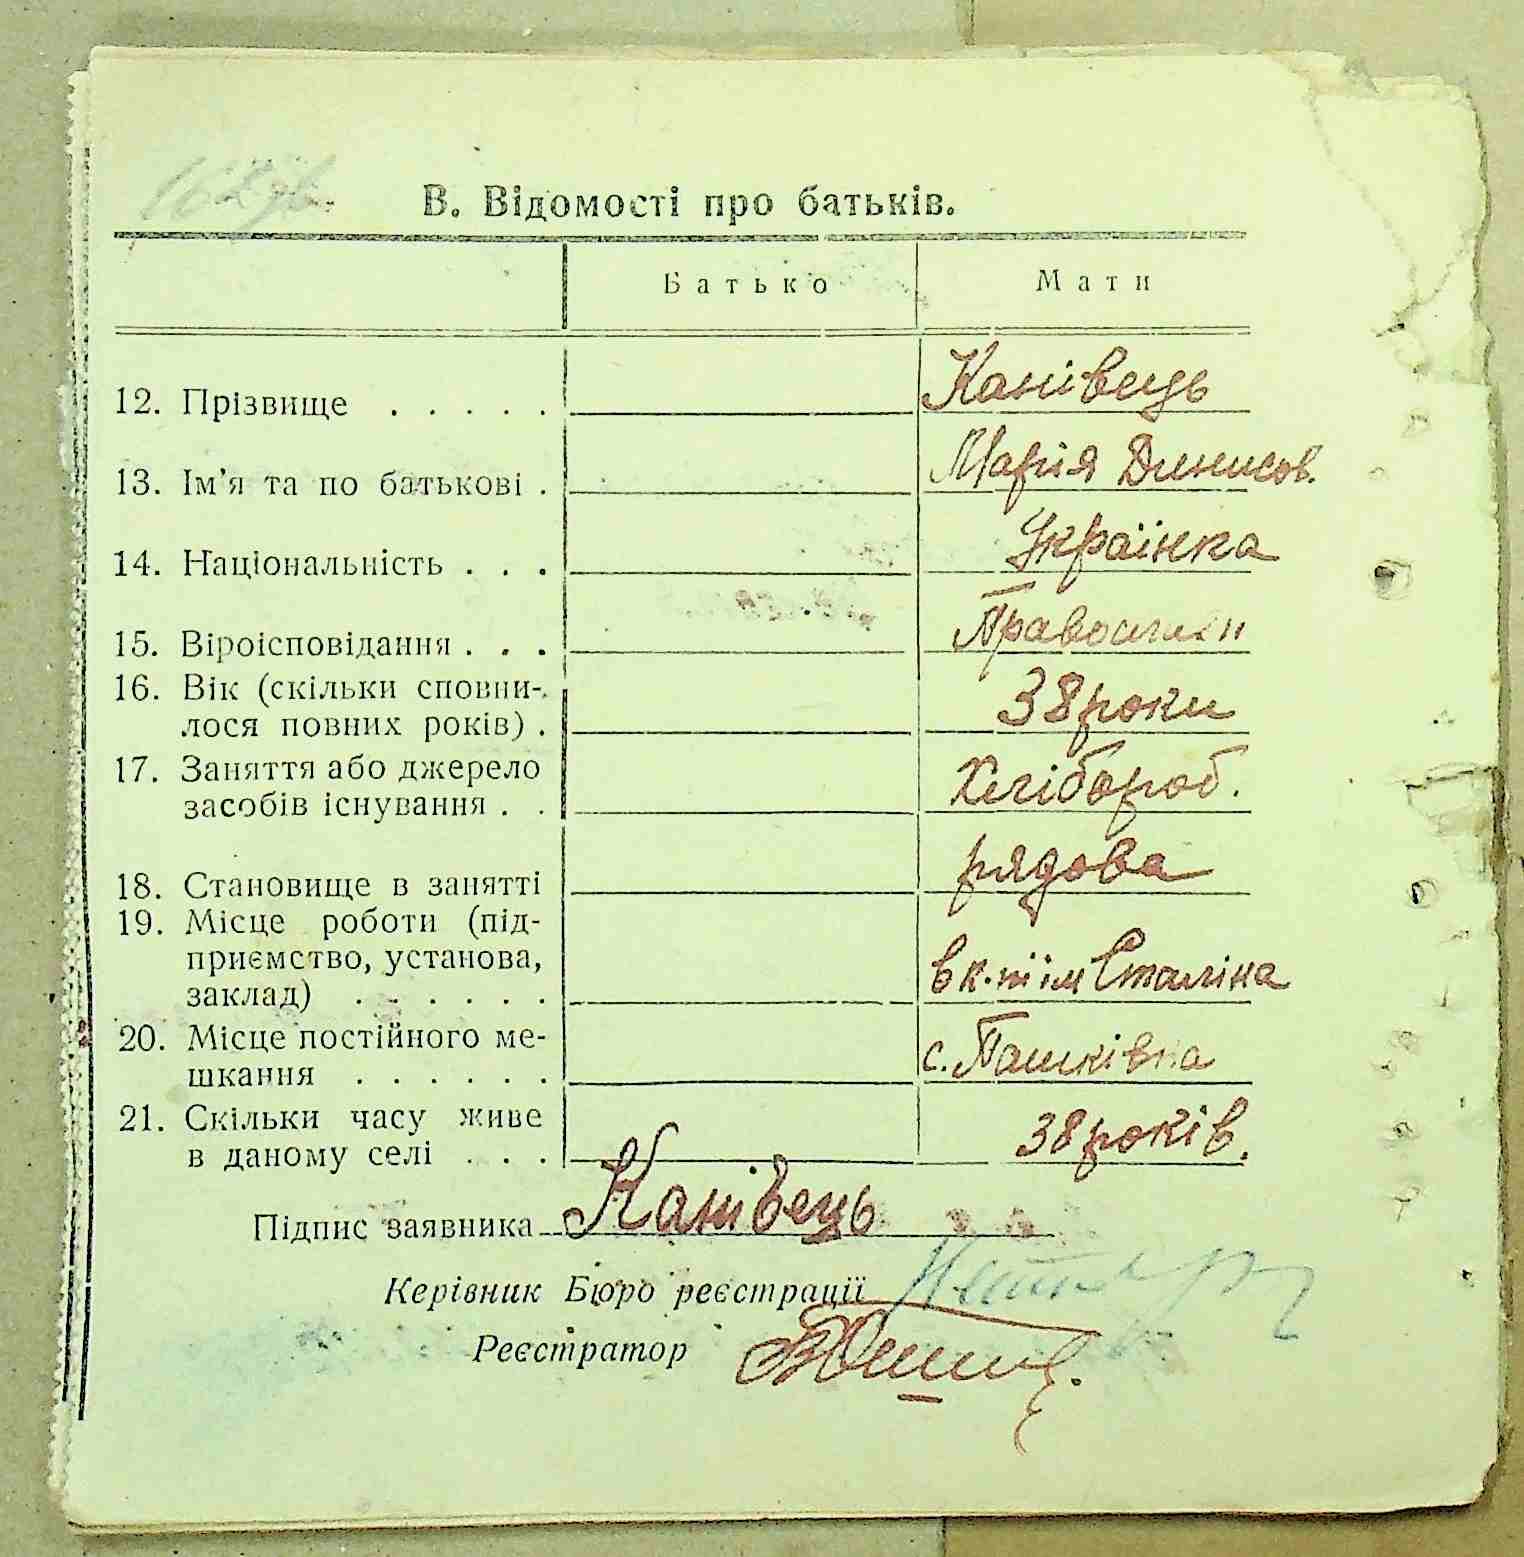 В. Відомості про батьків.
Батько Мати
12. Прізвище . . . . . Канівець
13. Ім'я та по батькові . Марія Денисов.
14. Національність . . . Українка
15. Віроісповідання . . . Православн
16. Вік (скільки сповни-
лося повних років) . 38 роки
17. Заняття або джерело
засобів існування . . Хлібороб.
18. Становище в занятті рядова
19. Місце роботи (під-
приємство, установа,
заклад) . . . . . . в к.п ім Сталіна
20. Місце постійного ме-
шкання . . . . . . с. Пашківка
21. Скільки часу живе
в даному селі . . . 38 років.
Підпис заявника Канівець
Керівник Бюро реєстрації
Реєстратор